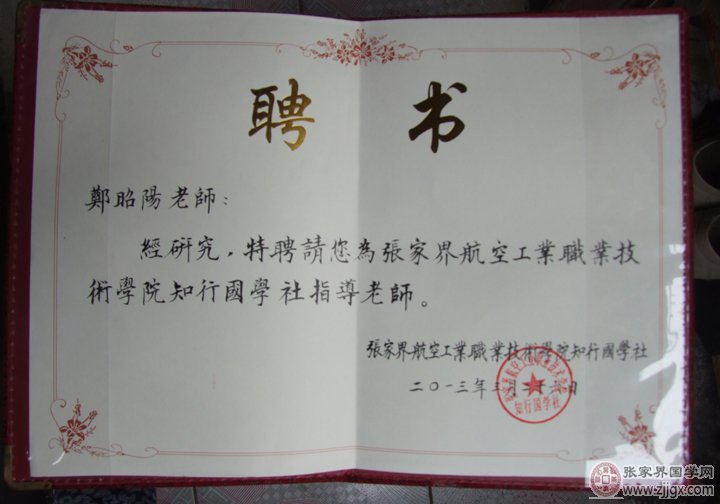 聘书
鄭昭陽老師：
經研究，特聘請您為張家界航空工業職業技
術學院知行國學社指導老師。
張家界航空工業職業技術學院知行國學社
二〇一三年三月二十六日
知行国学社
张家界国学网
www.zjjgx.com